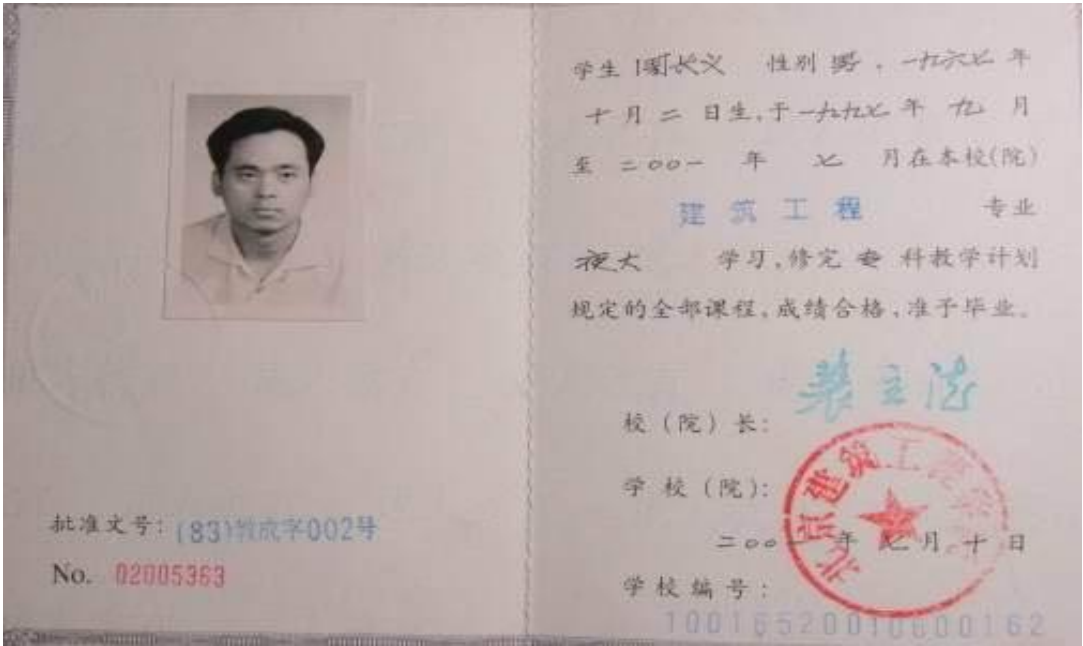 批准文号：(83)教成字002号
No. 02005363
学生 长义 性别 男，一九六七年
十月二日生，于一九九七年九月
至二〇〇一年七月在本校(院)
建筑工程 专业
夜大 学习，修完专科教学计划
规定的全部课程，成绩合格，准予毕业。
校（院）长：
学校（院）：
北京建筑工程学院
二〇〇一年七月 十日
学校编号：
100165200106000162